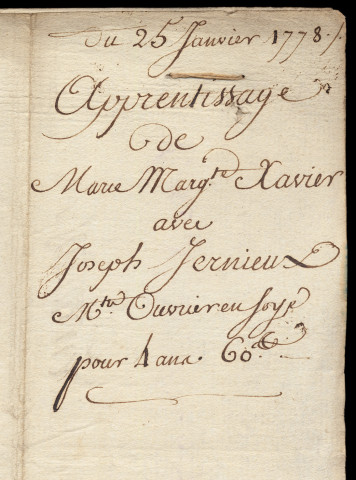 du 25 Janvier 1778./.
Apprentissage
de
Marie Marg.te Xavier
avec
Joseph Jernieux
M.tre Ouvrier en soye
pour 4 ans. 60.tt